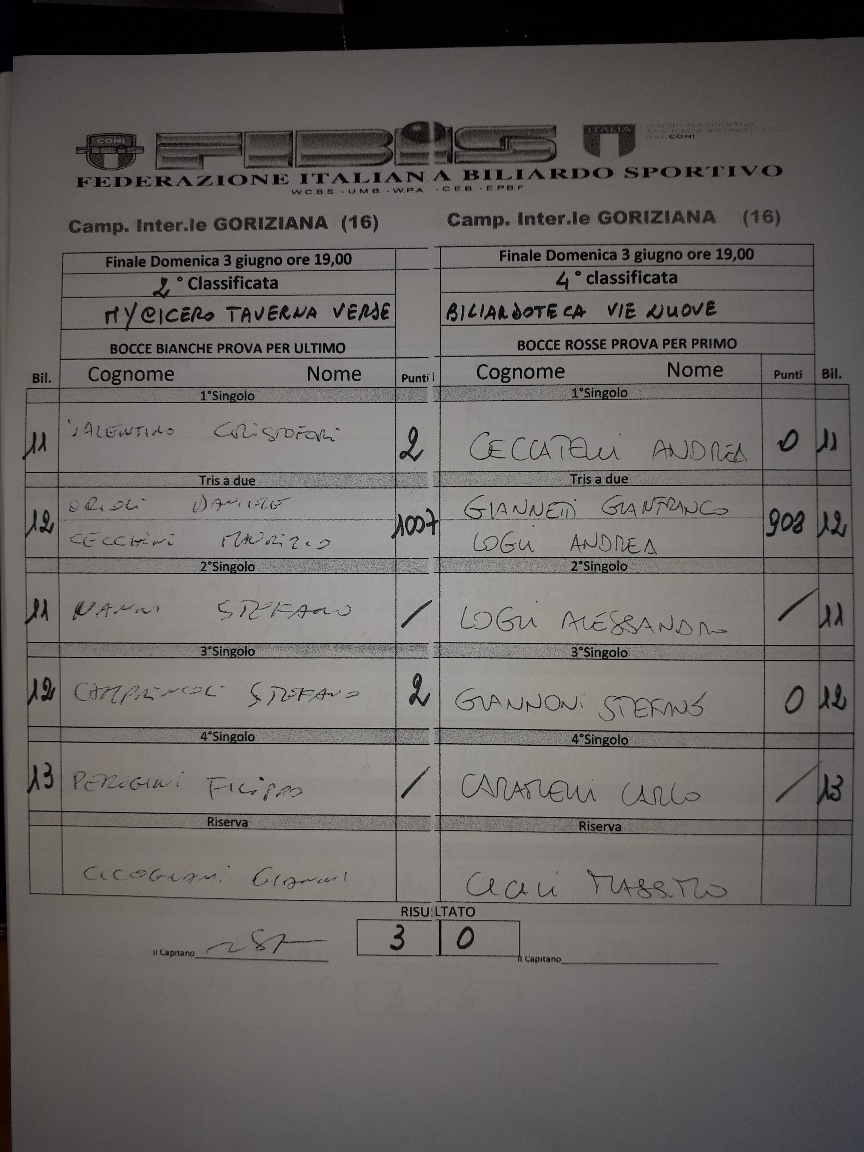 CONI FIBiS ITALIA
CONI
FEDERAZIONE ITALIANA BILIARDO SPORTIVO
WCBS - UMB - WPA - CEB - EPBF
Camp. Inter.le GORIZIANA (16) Camp. Inter.le GORIZIANA (16)
Finale Domenica 3 giugno ore 19,00 Finale Domenica 3 giugno ore 19,00
2° Classificata 4° classificata
MY@ICERO TAVERNA VERDE BILIARDOTECA VIE NUOVE
BOCCE BIANCHE PROVA PER ULTIMO BOCCE ROSSE PROVA PER PRIMO
Bil. Cognome Nome Punti Cognome Nome Punti Bil.
1°Singolo 1°Singolo
11 VALENTINO CRISTOFORI 2 CECCATELLI ANDREA 0 11
Tris a due Tris a due
12 1007 GIANNETTI GIANFRANCO 908 12
CECCHINI MAURIZIO LOGLI ANDREA
2°Singolo 2°Singolo
11 NANNI STEFANO / LOGLI ALESSANDRO / 11
3°Singolo 3°Singolo
12 STEFANO 2 GIANNONI STEFANO 0 12
4°Singolo 4°Singolo
13 PERUGINI FILIPPO / CARLO / 13
Riserva Riserva
CICOGNANI GIANNI MASSIMO
RISULTATO
Il Capitano 3 0 Il Capitano